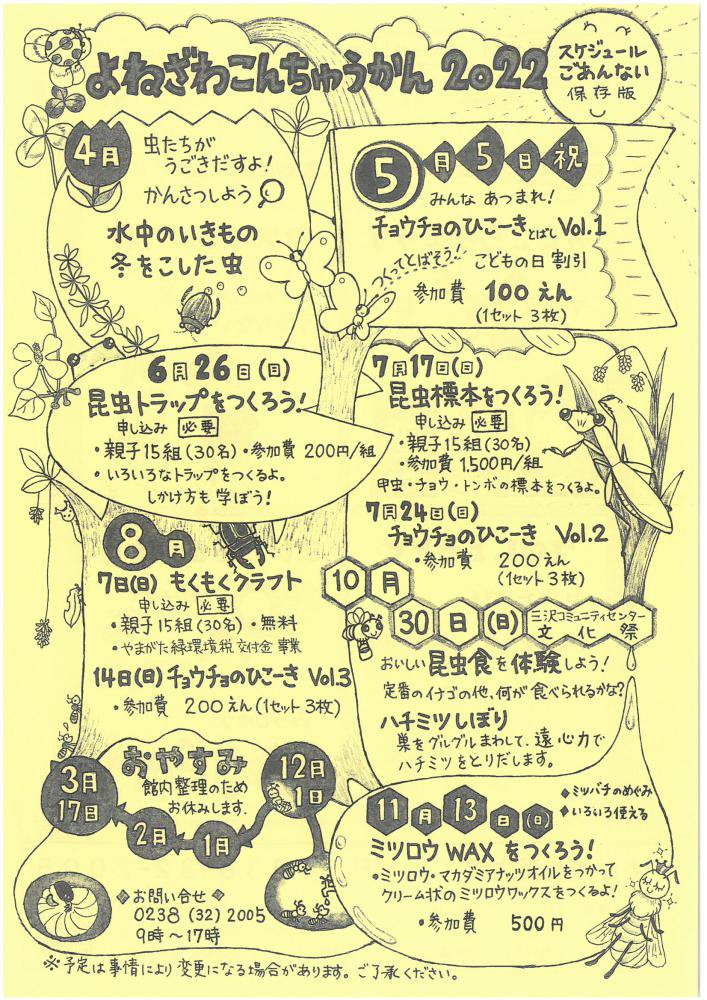 よねざわこんちゅうかん 2022
スケジュール
ごあんない
保存版
4月
虫たちが
うごきだすよ!
かんさつしよう
水中のいきもの
冬をこした虫
5月5日祝
みんな あつまれ!
チョウチョのひこーきとばし Vol.1
つくってとばそう!
こどもの日 割引
参加費 100えん
(1セット 3枚)
6月26日(日)
昆虫トラップをつくろう!
申し込み 必要
・親子15組(30名)・参加費 200円/組
・いろいろなトラップをつくるよ。
しかけ方も学ぼう!
7月17日(日)
昆虫標本をつくろう!
申し込み 必要
・親子15組(30名)
・参加費 1,500円/組
甲虫・チョウ・トンボの標本をつくるよ。
7月24日(日)
チョウチョのひこーき Vol.2
・参加費 200えん
(1セット3枚)
8月
7日(日) もくもくクラフト
申し込み 必要
・親子15組(30名)・無料
・やまがた緑環境税交付金事業
14日(日)チョウチョのひこーき Vol.3
・参加費 200えん(1セット3枚)
10月
30日(日) 三沢コミュニティセンター
文化祭
おいしい昆虫食を体験しよう!
定番のイナゴの他、何が食べられるかな?
ハチミツしぼり
巣をグルグルまわして、遠心力で
ハチミツをとりだします。
おやすみ
館内整理のため
お休みします.
12月
1日
1月
2月
3月
17日
◆お問い合せ◆
0238(32)2005
9時〜17時
11月13日(日)
◆ミツバチのめぐみ
◆いろいろ使える
ミツロウWAXをつくろう!
・ミツロウ・マカダミアナッツオイルをつかって
クリーム状のミツロウワックスをつくるよ!
・参加費 500円
※予定は事情により変更になる場合があります。ご了承ください。